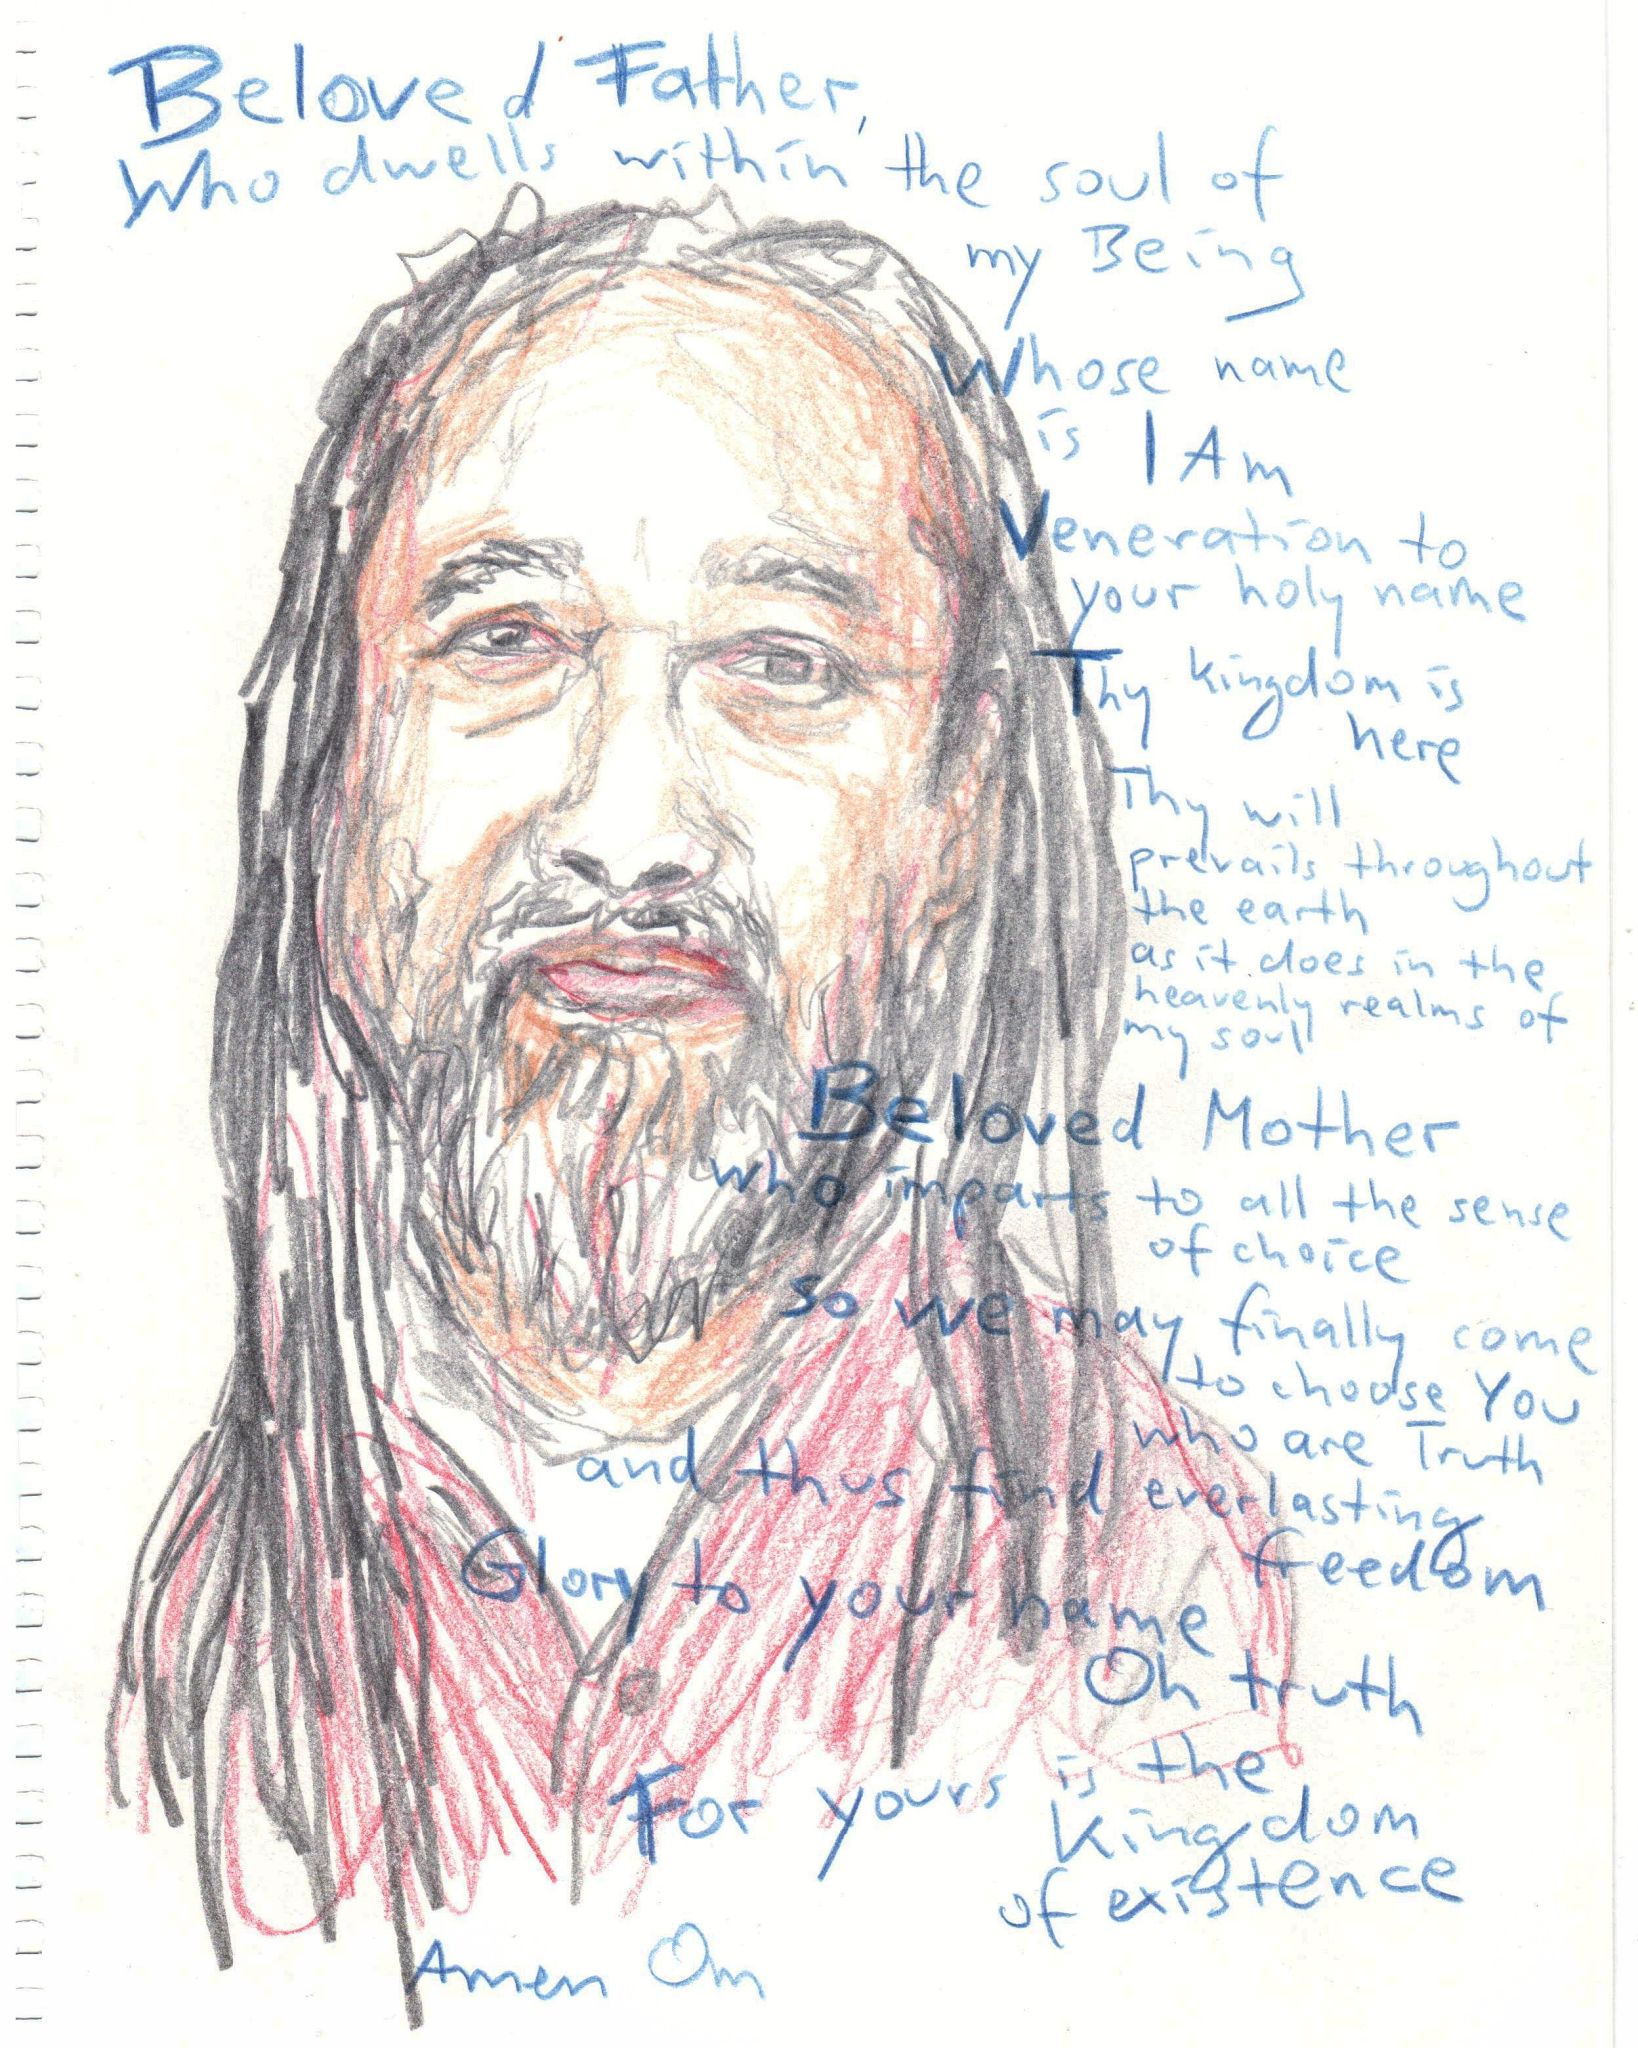 Beloved Father,
Who dwells within the soul of
my Being
Whose name
is I Am
Veneration to
your holy name
Thy kingdom is
here
Thy will
prevails throughout
the earth
as it does in the
heavenly realms of
my soul
Beloved Mother
who imparts to all the sense
of choice
so we may finally come
to choose You
who are Truth
and thus find everlasting
freedom
Glory to your name
Oh truth
For yours is the
Kingdom
of existence
Amen Om